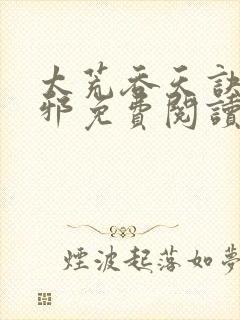 大荒吞天訣
邪免費閱讀
煙波起落如夢